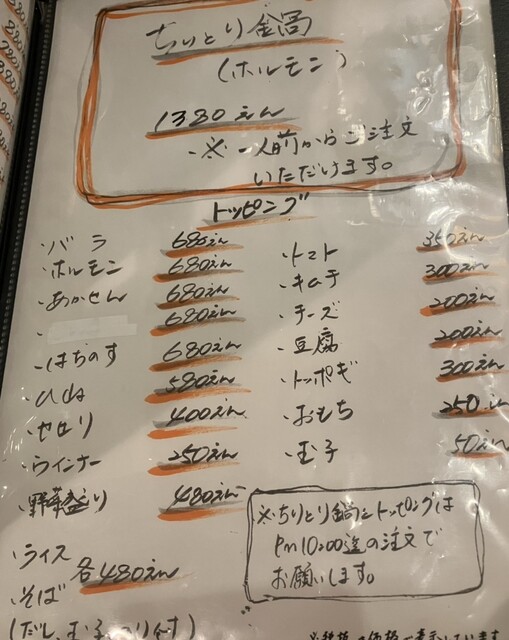 ちりとり鍋
(ホルモン)
1380えん
・※一人前からご注文
いただけます。
トッピング
・バラ 680えん
・ホルモン 680えん
・あかせん 680えん
・ 680えん
・はちのす 680えん
580えん
・セロリ 400えん
・ウインナー 250えん
・野菜盛り 480えん
・トマト 350えん
・キムチ 300えん
・チーズ 200えん
・豆腐 200えん
・トッポギ 300えん
・おもち 250えん
・玉子 50えん
・ライス
・そば
各480えん
(だし、玉子、のり付)
※ちりとり鍋とトッピングは
Pm10:00迄の注文で
お願いします。